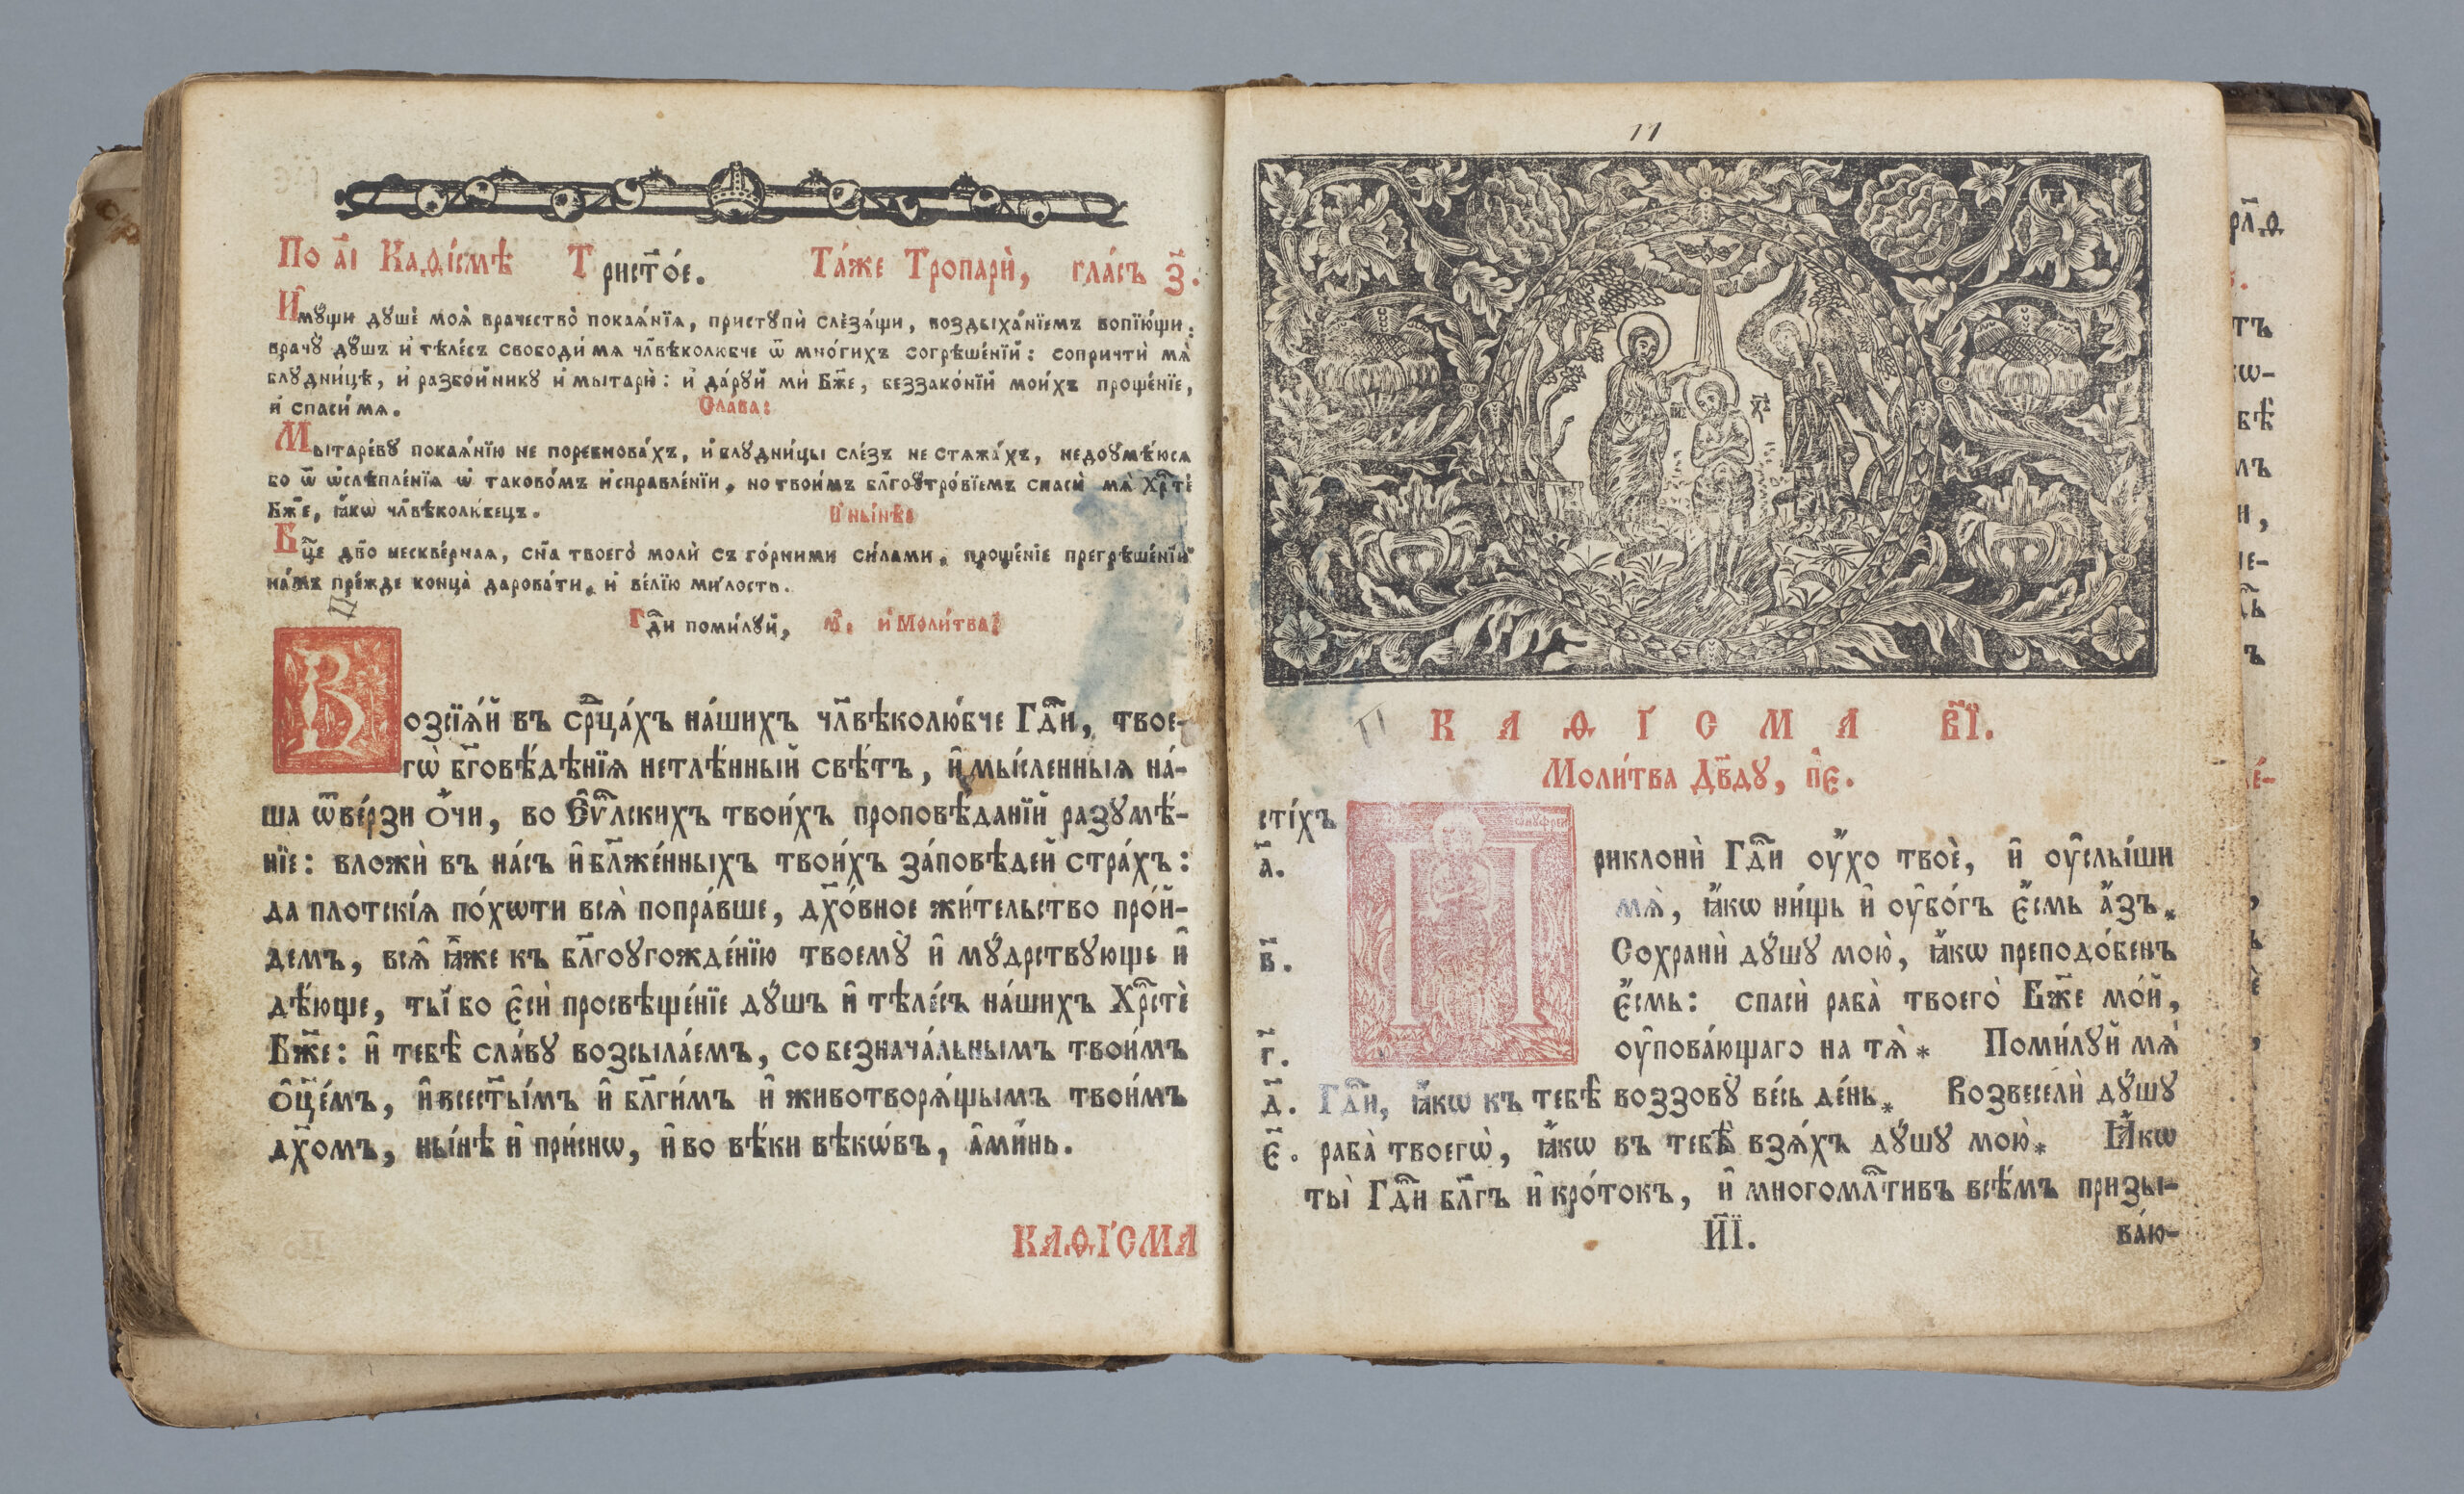 По а҃і Каѳі́смѣ Трист҃о́е. Та́же Тропарѝ, гла́съ з҃.
И҆мꙋ́щи дꙋшѐ моѧ̀ врачество̀ покаѧ́нїѧ, пристꙋпѝ слезѧ́щи, воздыха́нїемъ вопїю́щи:
врачꙋ̀ дꙋ́шъ и҆ тѣле́съ свободи́ мѧ чл҃вѣколюбче ѿ мно́гихъ согрѣше́нїй: сопричтѝ мѧ̀
блꙋдни́цѣ, и҆ разбо́йникꙋ и҆ мытарѝ: и҆ да́рꙋй мѝ Бж҃е, беззако́нїй мои́хъ проще́нїе,
и҆ спаси́ мѧ.
Слава:
Мытаре́вꙋ покаѧ́нїю не поревнова́хъ, и҆ блꙋдни́цы сле́зъ не стѧжа́хъ, недоꙋмѣ́юсѧ
бо ѿ ѡ҆слѣпле́нїѧ ѡ҆ таково́мъ и҆справле́нїи, но твои́мъ бл҃гоꙋтро́бїемъ спасѝ мѧ̀ Хрⷭ҇тѐ
Бж҃е, ꙗ҆́кѡ чл҃вѣколю́бецъ.
И҆ ны́нѣ:
Бц҃е дв҃о нескве́рнаѧ, сн҃а твоего̀ молѝ съ го́рними си́лами, проще́нїе прегрѣше́нїй
на́мъ пре́жде конца̀ дарова́ти, и҆ ве́лїю ми́лость.
Гдⷭ҇и поми́лꙋй, м҃. и҆ Моли́тва:
Возсїѧ́й въ срⷣца́хъ на́шихъ чл҃вѣколю́бче Гдⷭ҇и, твое-
гѡ̀ бг҃овѣ́дѣнїѧ нетлѣ́нный свѣ́тъ, и҆ мы́сленныѧ на́-
ша ѿве́рзи ѻ҆́чи, во Є҆ѵⷢ҇лскихъ твои́хъ проповѣ́данїй разꙋмѣ́-
нїе: вложѝ въ на́съ и҆ бл҃же́нныхъ твои́хъ за́повѣдей стра́хъ:
да плотскі́ѧ по́хѡти всѧ̀ попра́вше, дх҃о́вное жи́тельство про́й-
демъ, всѧ̑ ꙗ҆̀же къ бл҃гоꙋгожде́нїю твоемꙋ̀ и҆ мꙋ́дрствꙋюще и҆
дѣ́юще, ты́ бо є҆сѝ просвѣще́нїе дꙋ́шъ и҆ тѣле́съ на́шихъ Хрⷭ҇тѐ
Бж҃е: и҆ тебѣ̀ сла́вꙋ возсыла́емъ, со безнача́льнымъ твои́мъ
ѻ҆ц҃е́мъ, и҆ всест҃ы́мъ и҆ бл҃ги́мъ и҆ животворѧ́щымъ твои́мъ
дх҃омъ, ны́нѣ и҆ при́снѡ, и҆ во вѣ́ки вѣкѡ́въ, а҆ми́нь.
КАѲІ́СМА
11
КАѲІ́СМА в҃ї.
Моли́тва Дв҃дꙋ, п҃є.
сті́хъ
а҃. Приклонѝ Гдⷭ҇и оу҆́хо твоѐ, и҆ оу҆слы́ши
мѧ̀, ꙗ҆́кѡ ни́щь и҆ оу҆бо́гъ є҆́смь а҆́зъ*
в҃. Сохранѝ дꙋ́шꙋ мою̀, ꙗ҆́кѡ преподо́бенъ
є҆́смь: спасѝ раба̀ твоего̀ Бж҃е мо́й,
г҃. оу҆пова́ющаго на тѧ̀* Поми́лꙋй мѧ̀
д҃. Гдⷭ҇и, ꙗ҆́кѡ къ тебѣ̀ воззовꙋ̀ ве́сь де́нь* Возвеселѝ дꙋ́шꙋ
є҃. раба̀ твоегѡ̀, ꙗ҆́кѡ въ тебѣ̀ взѧ́хъ дꙋ́шꙋ мою̀* Ꙗ҆́кѡ
ты̀ Гдⷭ҇и бл҃гъ и҆ кро́токъ, и҆ многомлⷭ҇тивъ всѣ́мъ призы-
И҃Ї. ва́ю-